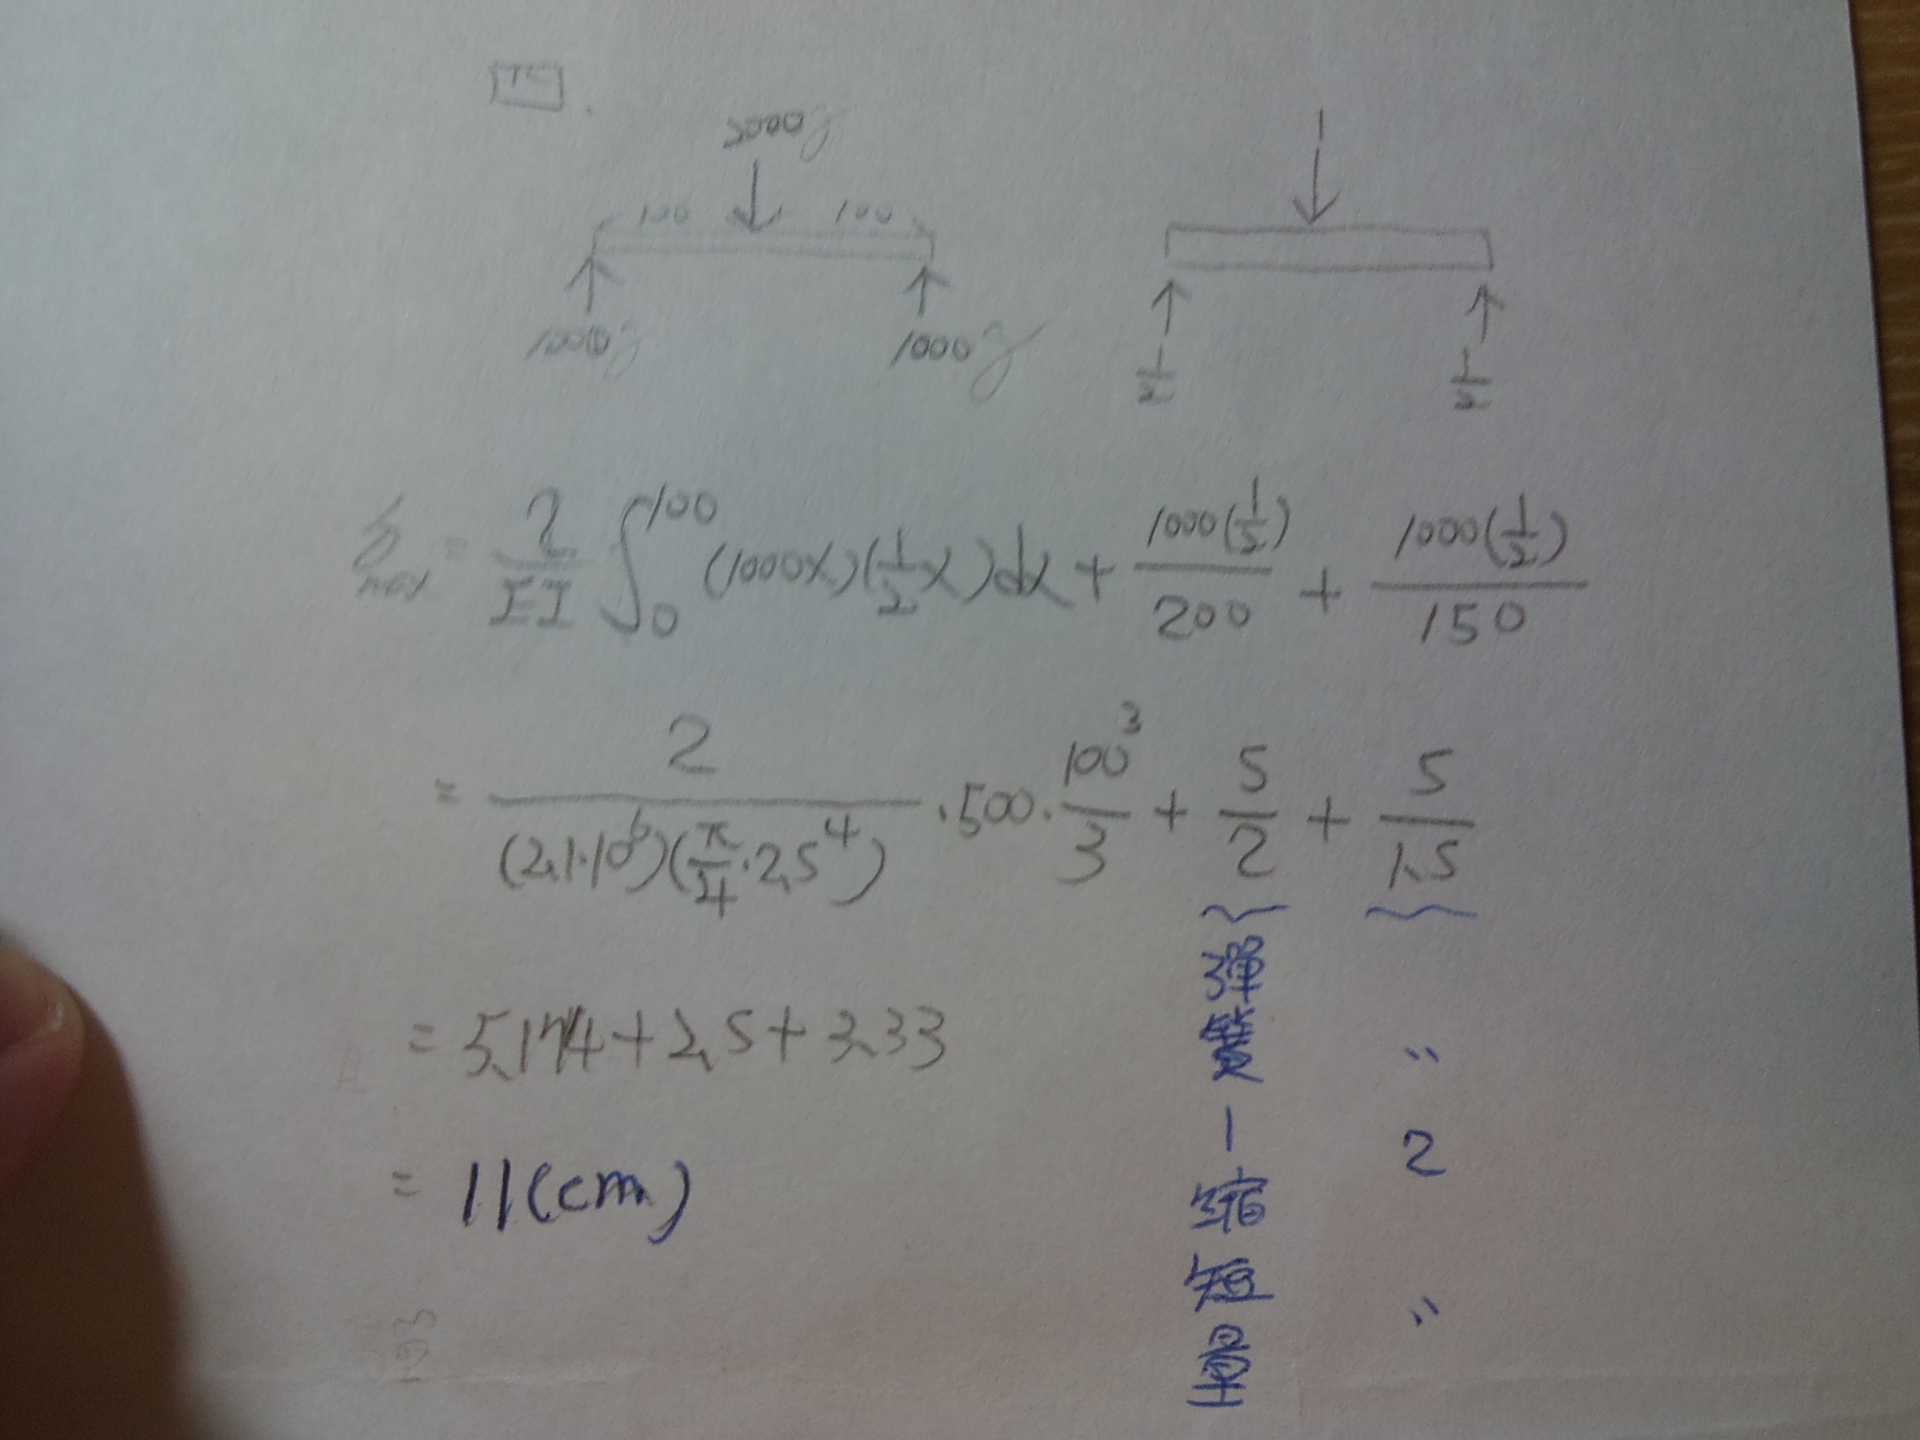 四.
2000g
100 100
1000g 1000g
1
1/2 1/2
δmax = 2/EI ∫₀¹⁰⁰ (1000x)(1/2 x)dx + 1000(1/2)/200 + 1000(1/2)/150
= 2/((2.1·10⁶)(π/4·2.5⁴)) ·500· 100³/3 + 5/2 + 5/1.5
= 5.174+2.5+3.33
= 11(cm)
彈簧1縮短量
〃2〃